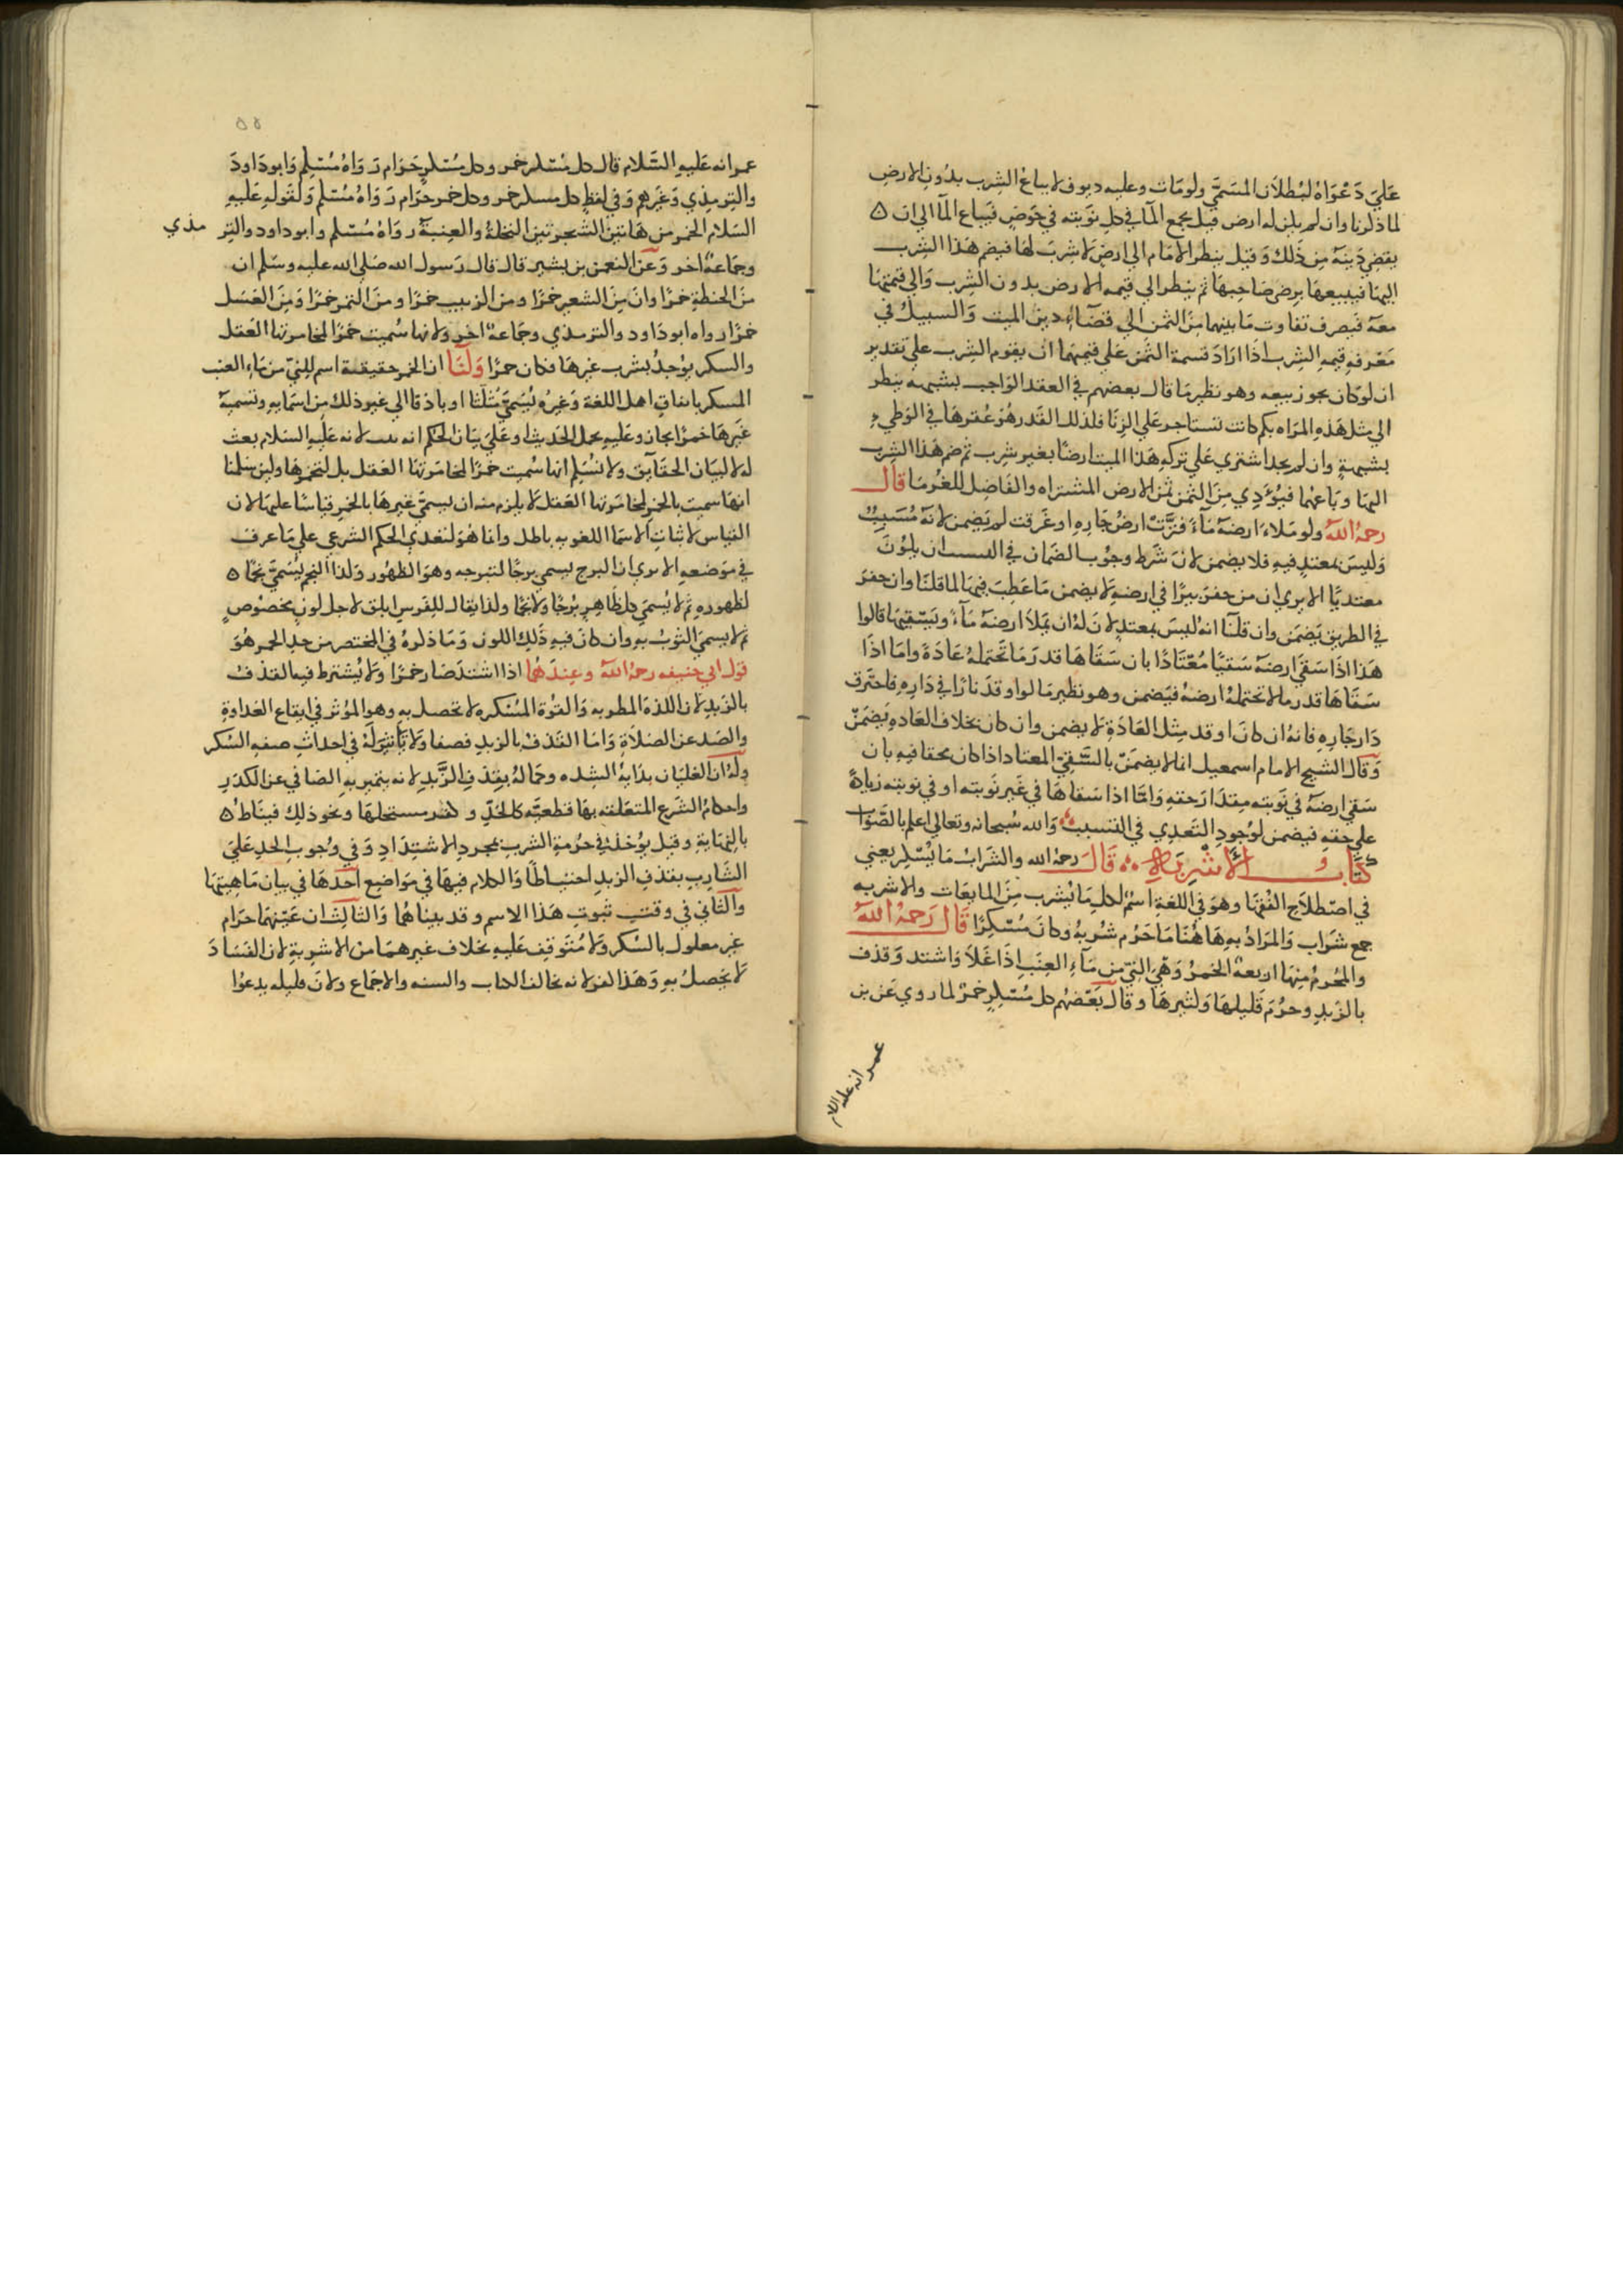 علي دعواه لبطلان المسمي ولومات وعليه ديون لا يباع الشرب بدون الارض
لما ذكرنا وان لم يكن له ارض قيل يجمع الماء في كل نوبته في حوض فيباع الماء الي ان
يقضي دينه من ذلك وقيل ينظر الامام الي ارض لا شرب لها فيضم هذا الشرب
اليها فيبيعها برضي صاحبها ثم ينظر الي قيمه الارض بدون الشرب والي قيمتها
معه فيصرف تفاوت ما بينهما من الثمن الي قضاء دين الميت والسبيل في
معرفه قيمه الشرب اذا اراد قسمة الثمن علي قيمتهما ان يقوم الشرب علي تقدير
ان لو كان يجوز بيعه وهو نظير ما قال بعضهم في العقد الواجب بشبهه ينظر
الي مثل هذه المراه بكم كانت تستاجر علي الزنا فلذلك القدر هو عقرها في الوطي
بشبهة وان لم يجد اشتري علي تركه هذا الميت ارضا بغير شرب ثم ضم هذا الشرب
اليها وباعهما فيؤدي من الثمن ثمن الارض المشتراه والفاضل للغرما قال
رحمه الله ولو ملاء ارضه ماء فنزت ارض جاره او غرقت لم يضمن لانه مسبب
وليس بمعتد فيه فلا يضمن لان شرط وجوب الضمان في السبب ان يكون
معتديا الا يري ان من حفر بيرا في ارضه لا يضمن ما عطب فيها لما قلنا وان حفر
في الطريق يضمن وان قلنا انه ليس بمعتد لان له ان يملا ارضه ماء ويسقيها قالوا
هذا اذا سقي ارضه سقيا معتادا بان سقاها قدر ما تحتمله عادة واما اذا
سقاها قدر ما لا تحتمله ارضه فيضمن وهو نظير ما لو اوقد نارا في داره فاحترق
دار جاره فانه ان كان اوقد مثل العادة لا يضمن وان كان بخلاف العاده يضمن
وقال الشيخ الامام اسمعيل انما لا يضمن بالسقي المعتاد اذا كان محقا فيه بان
سقي ارضه في نوبته مقدار حقه واما اذا سقاها في غير نوبته او في نوبته زيادة
علي حقه فيضمن لوجود التعدي في التسبب والله سبحانه وتعالي اعلم بالصواب
كتاب الاشربه قال رحمه الله والشراب ما يسكر يعني
في اصطلاح الفقها وهو في اللغة اسم لكل ما يشرب من المايعات والاشربه
جمع شراب والمراد به هاهنا ما حرم شربه وكان مسكرا قال رحمه الله
والمحرم منها اربعة الخمر وهي الني من ماء العنب اذا غلا واشتد وقذف
بالزبد وحرم قليلها وكثيرها وقال بعضهم كل مسكر خمر لما روي عن بن
عمر انه عليه السلام
عمر انه عليه السلام قال كل مسكر خمر وكل مسكر حرام رواه مسلم وابو داود
والترمذي وغيرهم وفي لفظ كل مسكر خمر وكل خمر حرام رواه مسلم ولقوله عليه
السلام الخمر من هاتين الشجرتين النخلة والعنبة رواه مسلم وابو داود والتر مذي
وجماعة اخر وعن النعمن بن بشير قال قال رسول الله صلي الله عليه وسلم ان
من الحنطة خمرا وان من الشعير خمرا ومن الزبيب خمرا ومن التمر خمرا ومن العسل
خمرا رواه ابو داود والترمذي وجماعة اخر ولانها سميت خمرا لمخامرتها العقل
والسكر يوجد بشرب غيرها فكان خمرا ولنا ان الخمر حقيقة اسم للني من ماء العنب
المسكر باتفاق اهل اللغة وغيره يسمي مثلثا او باذقا الي غير ذلك من اسمايه وتسمية
غيرها خمرا مجاز وعليه يحمل الحديث او علي بيان الحكم انه لانه عليه السلام بعث
له لا لبيان الحقايق ولا نسلم انها سميت خمرا لمخامرتها العقل بل لتخمرها ولين سلمنا
انها سميت بالخمر لمخامرتها العقل لا يلزم منه ان يسمي غيرها بالخمر قياسا عليها لان
القياس لاثبات الاسما اللغويه باطل وانما هو لتعدي الحكم الشرعي علي ما عرف
في موضعه الا يري ان البرج يسمي برجا لتبرجه وهو الظهور ولذا النجم يسمي نجما
لظهوره ثم لا يسمي كل ظاهر برجا ولا نجما ولذا يقال للفرس ابلق لاجل لون مخصوص
ثم لا يسمي الثوب به وان كان فيه ذلك اللون وما ذكره في المختصر من حد الخمر هو
قول ابي حنيفه رحمه الله وعندهما اذا اشتد صار خمرا ولا يشترط فيه القذف
بالزبد لان اللذة المطربه والقوة المسكره لا تحصل به وهو المؤثر في ايقاع العداوة
والصد عن الصلاة واما القذف بالزبد فصفا ولا تاثير له في احداث صفه السكر
وله ان الغليان بداية الشده وكماله بقذف الزبد لانه يتميز به الصافي عن الكدر
واحكام الشرع المتعلقه بها قطعيه كالحد وكفر مستحلها ونحو ذلك فيناط
بالنهاية وقيل يؤخذ في حرمة الشرب بمجرد الاشتداد وفي وجوب الحد علي
الشارب بقذف الزبد احتياطا والكلام فيها في مواضع احدها في بيان ماهيتها
والثاني في وقت ثبوت هذا الاسم وقد بيناهما والثالث ان عينها حرام
غير معلول بالسكر ولا متوقف عليه بخلاف غيرهما من الاشربة لان الفساد
لا يحصل به وهذا كفر لانه يخالف الكتاب والسنه والاجماع ولان قليله يدعوا